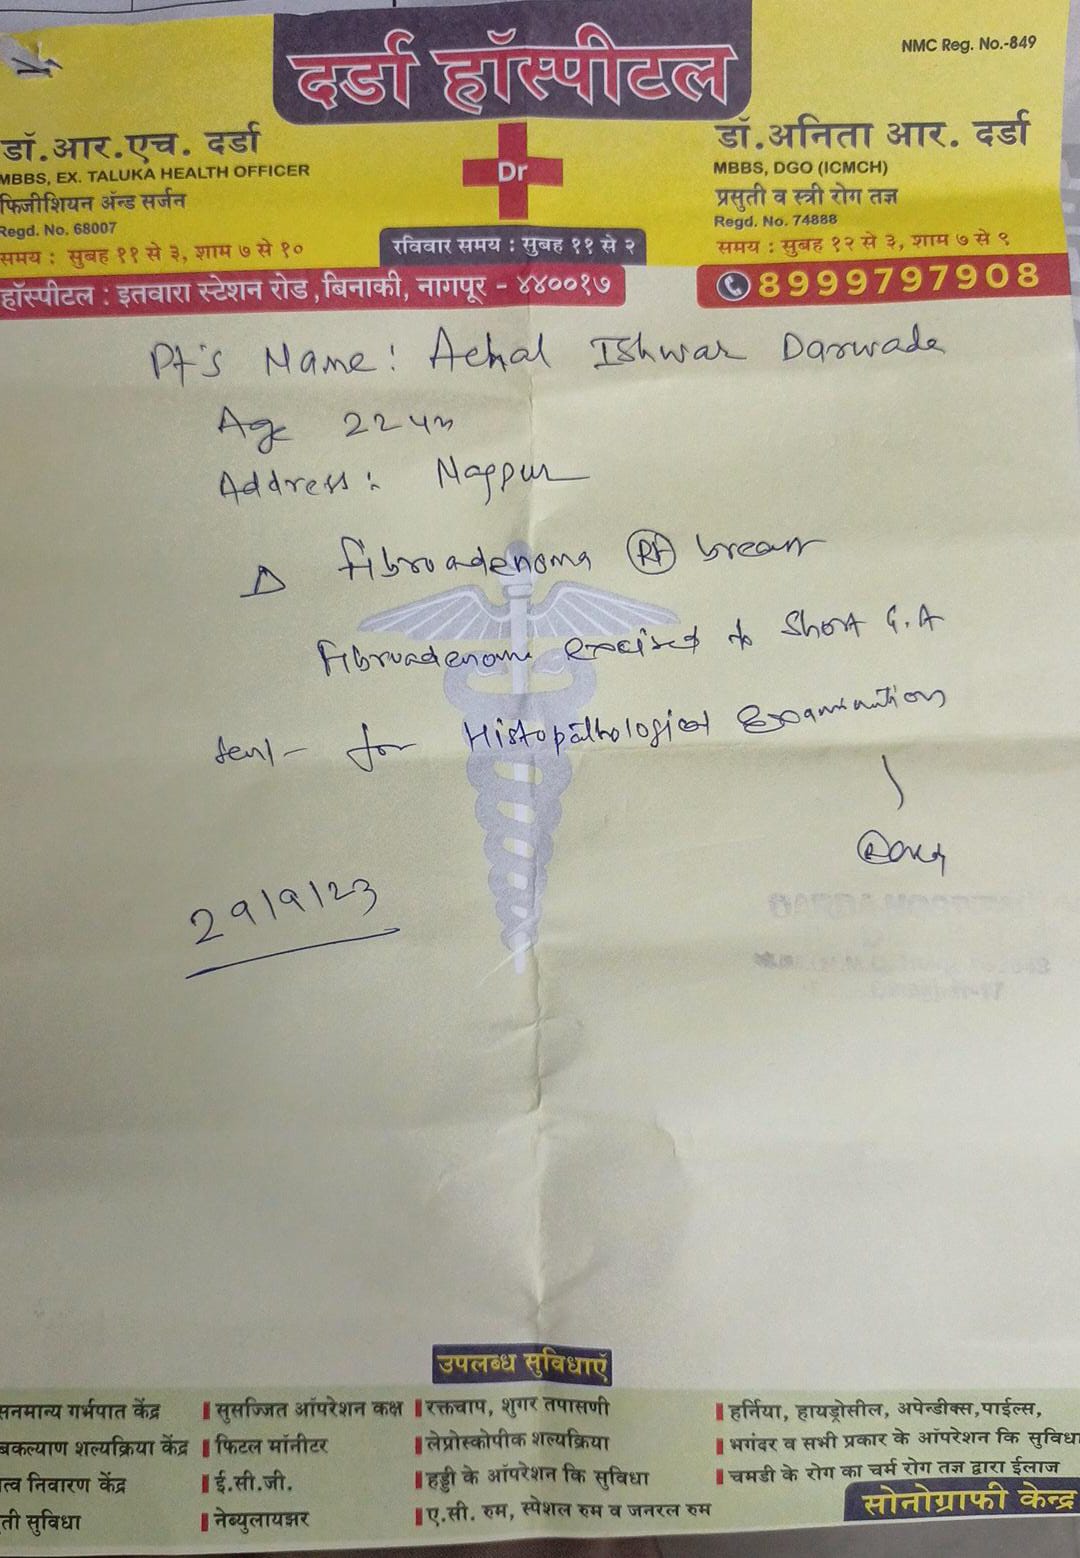 NMC Reg. No.-849
दर्डा हॉस्पीटल
डॉ.आर.एच. दर्डा
MBBS, EX. TALUKA HEALTH OFFICER
फिजीशियन ॲन्ड सर्जन
Regd. No. 68007
समय : सुबह ११ से ३, शाम ७ से १०
Dr
रविवार समय : सुबह ११ से २
डॉ.अनिता आर. दर्डा
MBBS, DGO (ICMCH)
प्रसुती व स्त्री रोग तज्ञ
Regd. No. 74888
समय : सुबह १२ से ३, शाम ७ से ९
हॉस्पीटल : इतवारा स्टेशन रोड, बिनाकी, नागपूर - ४४००१७
8999797908
Pt's Name: Achal Ishwar Darwade
Age 22 yrs
Address: Nagpur
Δ Fibroadenoma Rt breast
Fibroadenoma excised Short G.A
Sent for Histopathological Examination
29/9/23
उपलब्ध सुविधाएँ
सनमान्य गर्भपात केंद्र
बकल्याण शल्यक्रिया केंद्र
त्व निवारण केंद्र
ती सुविधा
सुसज्जित ऑपरेशन कक्ष
फिटल मॉनीटर
ई.सी.जी.
नेब्युलायझर
रक्तचाप, शुगर तपासणी
लेप्रोस्कोपीक शल्यक्रिया
हड्डी के ऑपरेशन कि सुविधा
ए.सी. रुम, स्पेशल रुम व जनरल रुम
हर्निया, हायड्रोसील, अपेन्डीक्स,पाईल्स,
भगंदर व सभी प्रकार के ऑपरेशन कि सुविधा
चमडी के रोग का चर्म रोग तज्ञ द्वारा ईलाज
सोनोग्राफी केन्द्र